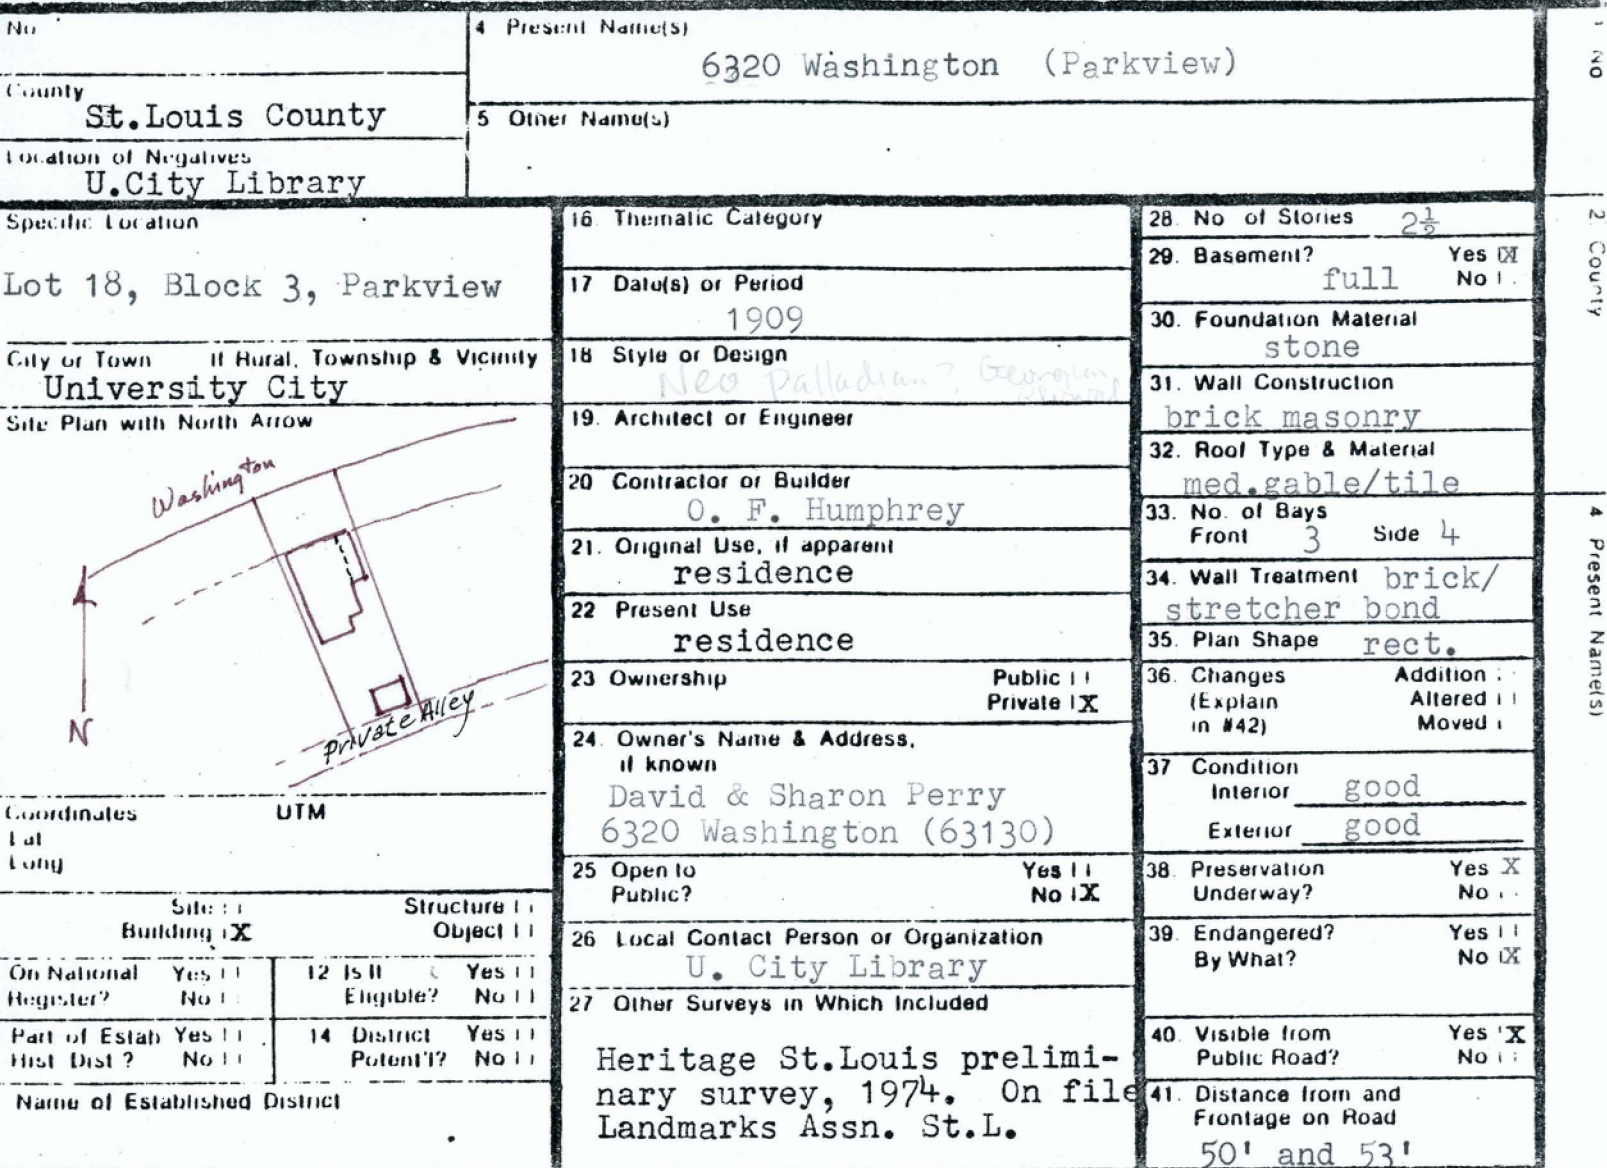 No
4 Present Name(s)
6320 Washington (Parkview)
County
St.Louis County
5 Other Name(s)
Location of Negatives
U.City Library
Specific Location
Lot 18, Block 3, Parkview
City or Town If Rural, Township & Vicinity
University City
Site Plan with North Arrow
Washington
N
Private Alley
Coordinates UTM
Lat
Long
Site Structure
Building X Object
On National Register? Yes No
12 Is It Eligible? Yes No
Part of Estab Hist Dist? Yes No
14 District Potent'l? Yes No
Name of Established District
16. Thematic Category
17 Date(s) or Period
1909
18 Style or Design
Neo Palladian? Georgian
19. Architect or Engineer
20 Contractor or Builder
O. F. Humphrey
21. Original Use, if apparent
residence
22 Present Use
residence
23 Ownership Public
Private X
24. Owner's Name & Address,
if known
David & Sharon Perry
6320 Washington (63130)
25 Open to Yes
Public? No X
26 Local Contact Person or Organization
U. City Library
27 Other Surveys in Which Included
Heritage St.Louis prelimi-
nary survey, 1974. On file
Landmarks Assn. St.L.
28. No of Stories 2½
29. Basement? Yes X
full No
30. Foundation Material
stone
31. Wall Construction
brick masonry
32. Roof Type & Material
med.gable/tile
33. No. of Bays
Front 3 Side 4
34. Wall Treatment brick/
stretcher bond
35. Plan Shape rect.
36. Changes Addition
(Explain Altered
in #42) Moved
37 Condition
Interior good
Exterior good
38. Preservation Yes X
Underway? No
39. Endangered? Yes
By What? No X
40. Visible from Yes X
Public Road? No
41. Distance from and
Frontage on Road
50' and 53'
1 No
2 County
4 Present Name(s)